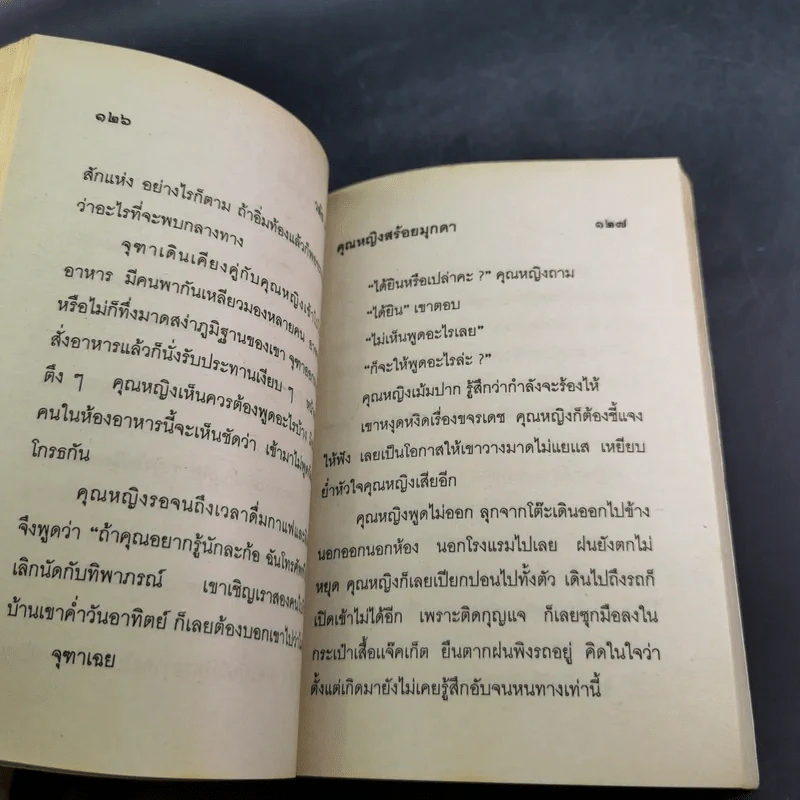 ๑๒๖
สักแห่ง อย่างไรก็ตาม ถ้าอิ่มท้องแล้วก็
ว่าอะไรที่จะพบกลางทาง
จุฑาเดินเคียงคู่กับคุณหญิงเข้า
อาหาร มีคนพากันเหลียวมองหลายคน
หรือไม่ก็ทึ่งมาดสง่าภูมิฐานของเขา จุฑา
สั่งอาหารแล้วก็นั่งรับประทานเงียบ ๆ
ตึง ๆ คุณหญิงเห็นควรต้องพูดอะไรบ้าง
คนในห้องอาหารนี้จะเห็นชัดว่า เข้ามาไม่พูด
โกรธกัน
คุณหญิงรอจนถึงเวลาดื่มกาแฟ
จึงพูดว่า “ถ้าคุณอยากรู้นักละก้อ ฉันโทรศัพท์
เลิกนัดกับทิพาภรณ์ เขาเชิญเราสองคน
บ้านเขาค่ำวันอาทิตย์ ก็เลยต้องบอกเขาไป
จุฑาเฉย
คุณหญิงสร้อยมุกดา ๑๒๗
“ได้ยินหรือเปล่าคะ ?” คุณหญิงถาม
“ได้ยิน” เขาตอบ
“ไม่เห็นพูดอะไรเลย”
“ก็จะให้พูดอะไรล่ะ ?”
คุณหญิงเม้มปาก รู้สึกว่ากำลังจะร้องไห้
เขาหงุดหงิดเรื่องขจรเดช คุณหญิงก็ต้องชี้แจง
ให้ฟัง เลยเป็นโอกาสให้เขาวางมาดไม่แยแส เหยียบ
ย่ำหัวใจคุณหญิงเสียอีก
คุณหญิงพูดไม่ออก ลุกจากโต๊ะเดินออกไปข้าง
นอกออกนอกห้อง นอกโรงแรมไปเลย ฝนยังตกไม่
หยุด คุณหญิงก็เลยเปียกปอนไปทั้งตัว เดินไปถึงรถก็
เปิดเข้าไม่ได้อีก เพราะติดกุญแจ ก็เลยซุกมือลงใน
กระเป๋าเสื้อแจ๊คเก็ต ยืนตากฝนพิงรถอยู่ คิดในใจว่า
ตั้งแต่เกิดมายังไม่เคยรู้สึกอับจนหนทางเท่านี้